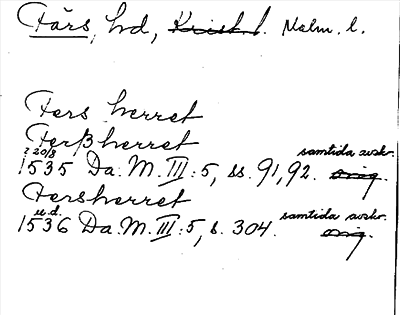 Färs, hd, Krist. l. Malm. l.
Fers herret
Ferßherret
20/8 samtida avskr.
1535 Da. M. III: 5, ss. 91, 92. orig.
Fersherret
u.d. samtida avskr.
1536 Da. M. III: 5, s. 304. orig.